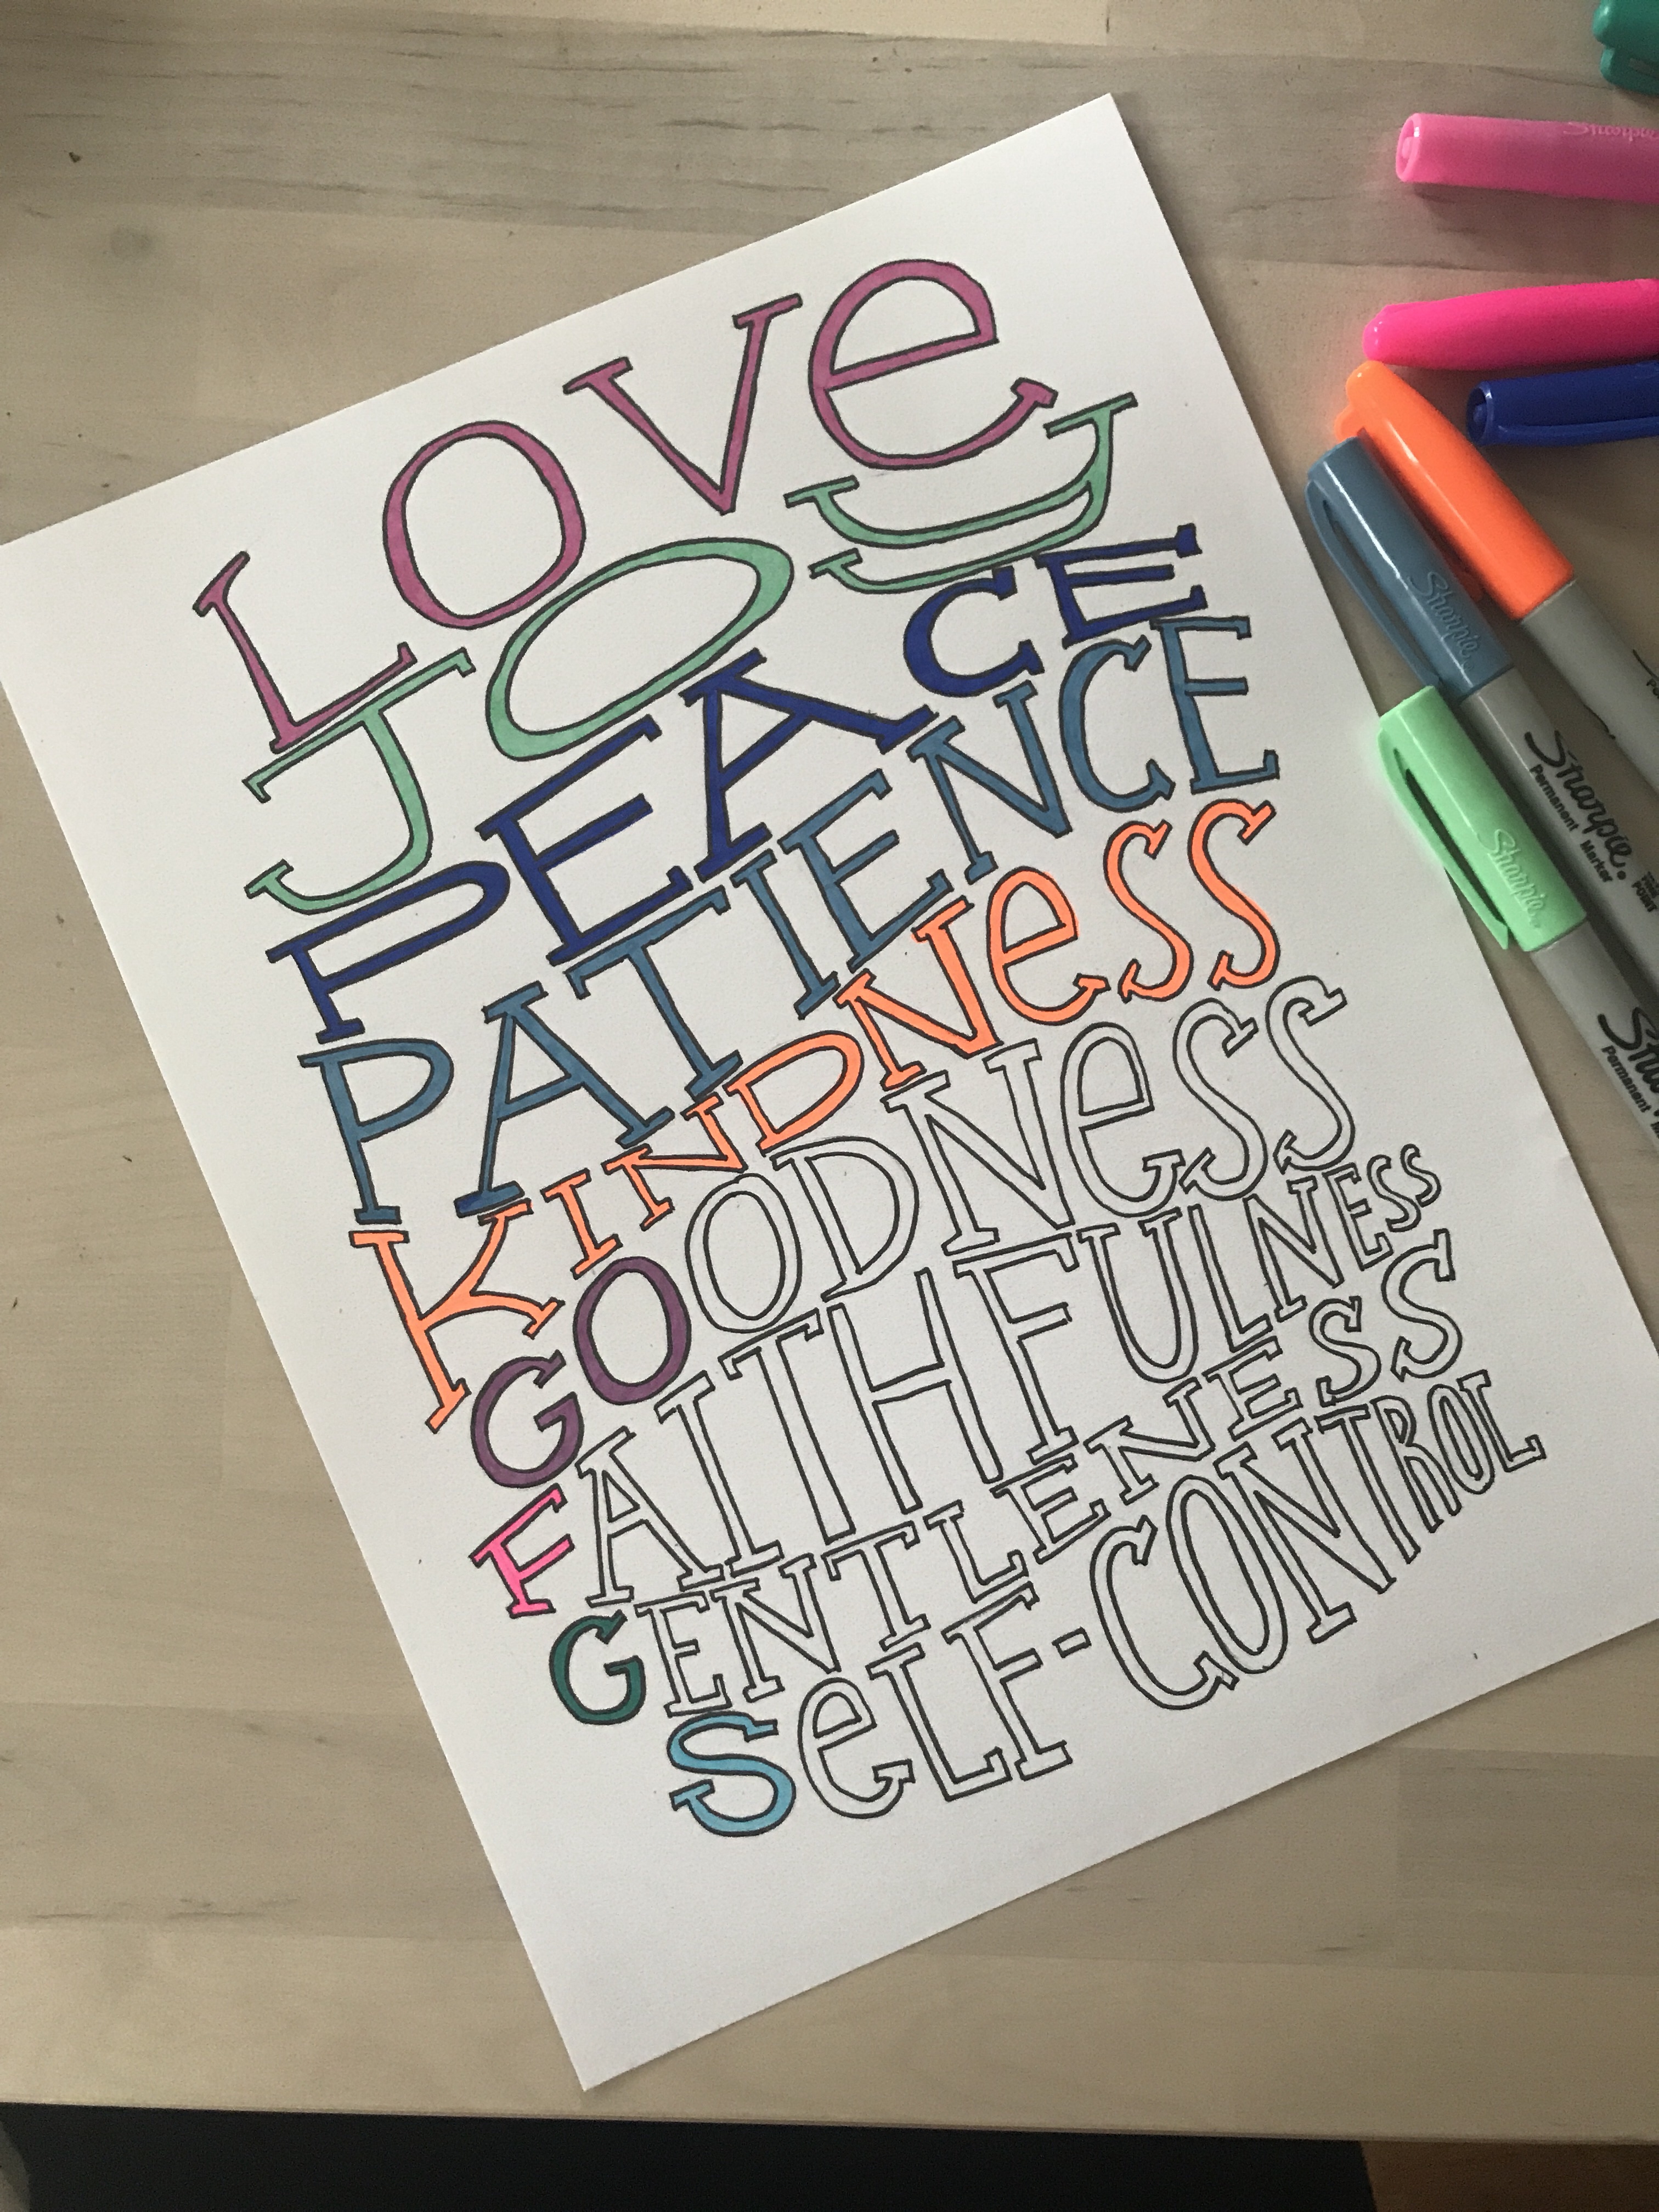 Love
JOy
PEACE
PATIENCE
KINDNeSS
GOODNeSS
FAITHFULNESS
GENTLENESS
SeLF-CONTROL
Sharpie
Sharpie
Sharpie
Sharpie
Permanent Marker
FINE POINT
Permanent